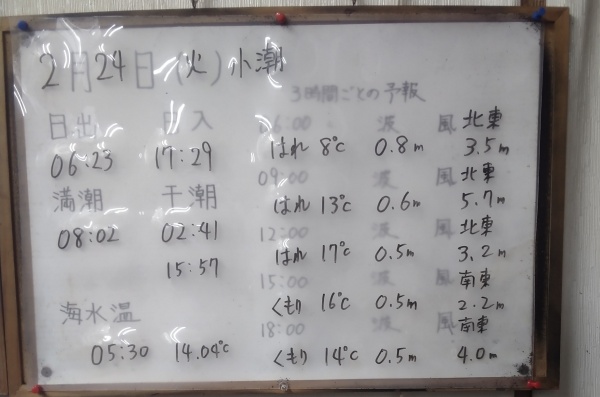 2月24日(火)小潮
3時間ごとの予報
日出 日入
06:23 17:29
満潮 干潮
08:02 02:41
15:57
海水温
05:30 14.04℃
06:00 波 風 北東
はれ 8℃ 0.8m 3.5m
09:00 波 風 北東
はれ 13℃ 0.6m 5.7m
12:00 波 風 北東
はれ 17℃ 0.5m 3.2m
15:00 波 風 南東
くもり 16℃ 0.5m 2.2m
18:00 波 風 南東
くもり 14℃ 0.5m 4.0m